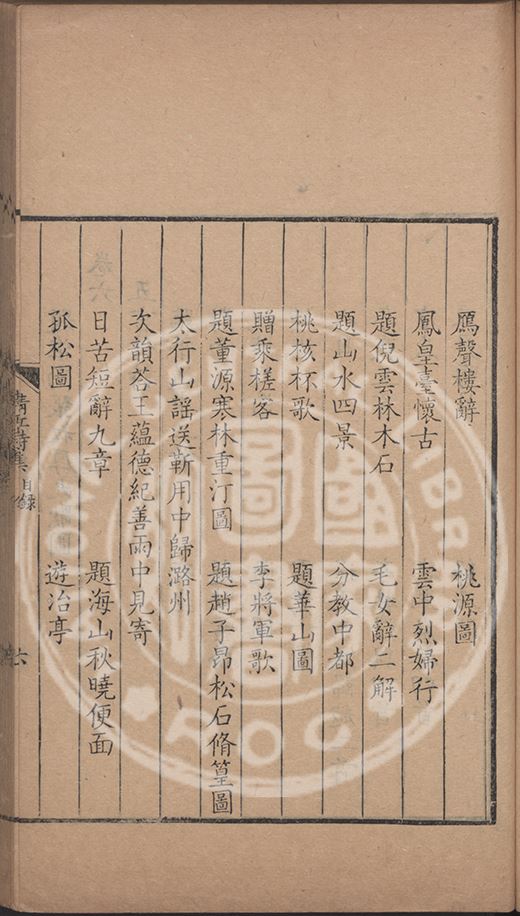 鴈聲樓辭　桃源圖
鳳皇臺懷古　雲中烈婦行
題倪雲林木石　毛女辭二解
題山水四景　分教中都
桃核杯歌　題華山圖
贈乘槎客　李將軍歌
題董源寒林重汀圖　題趙子昂松石脩篁圖
太行山謠送靳用中歸潞州
次韻荅王蘊德紀善雨中見寄
日苦短辭九章　題海山秋曉便面
孤松圖　遊冶亭
詩集　目錄　六